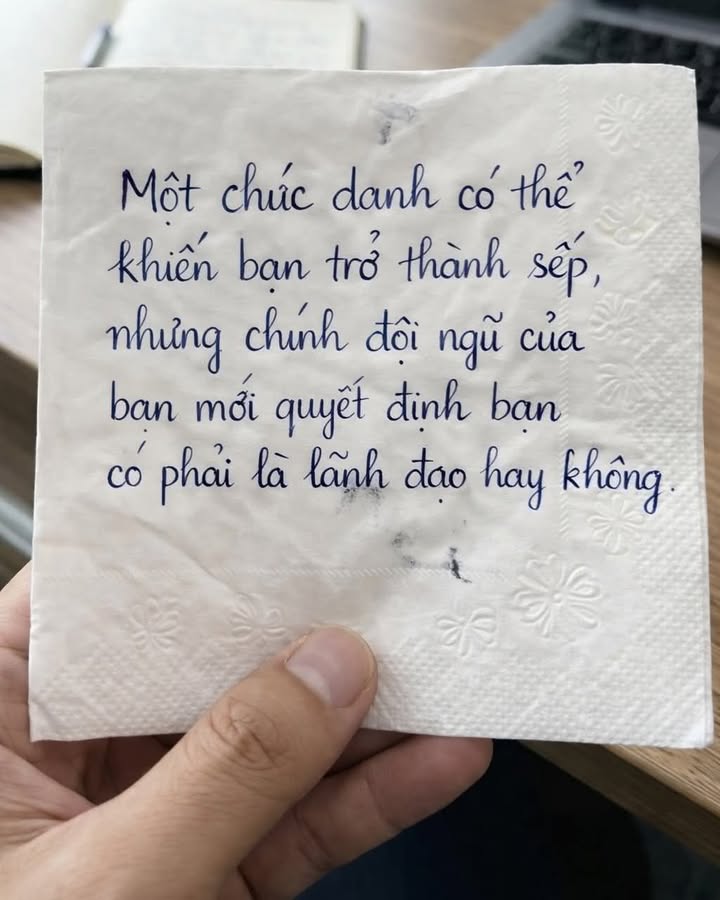 Một chức danh có thể
khiến bạn trở thành sếp,
nhưng chính đội ngũ của
bạn mới quyết định bạn
có phải là lãnh đạo hay không.